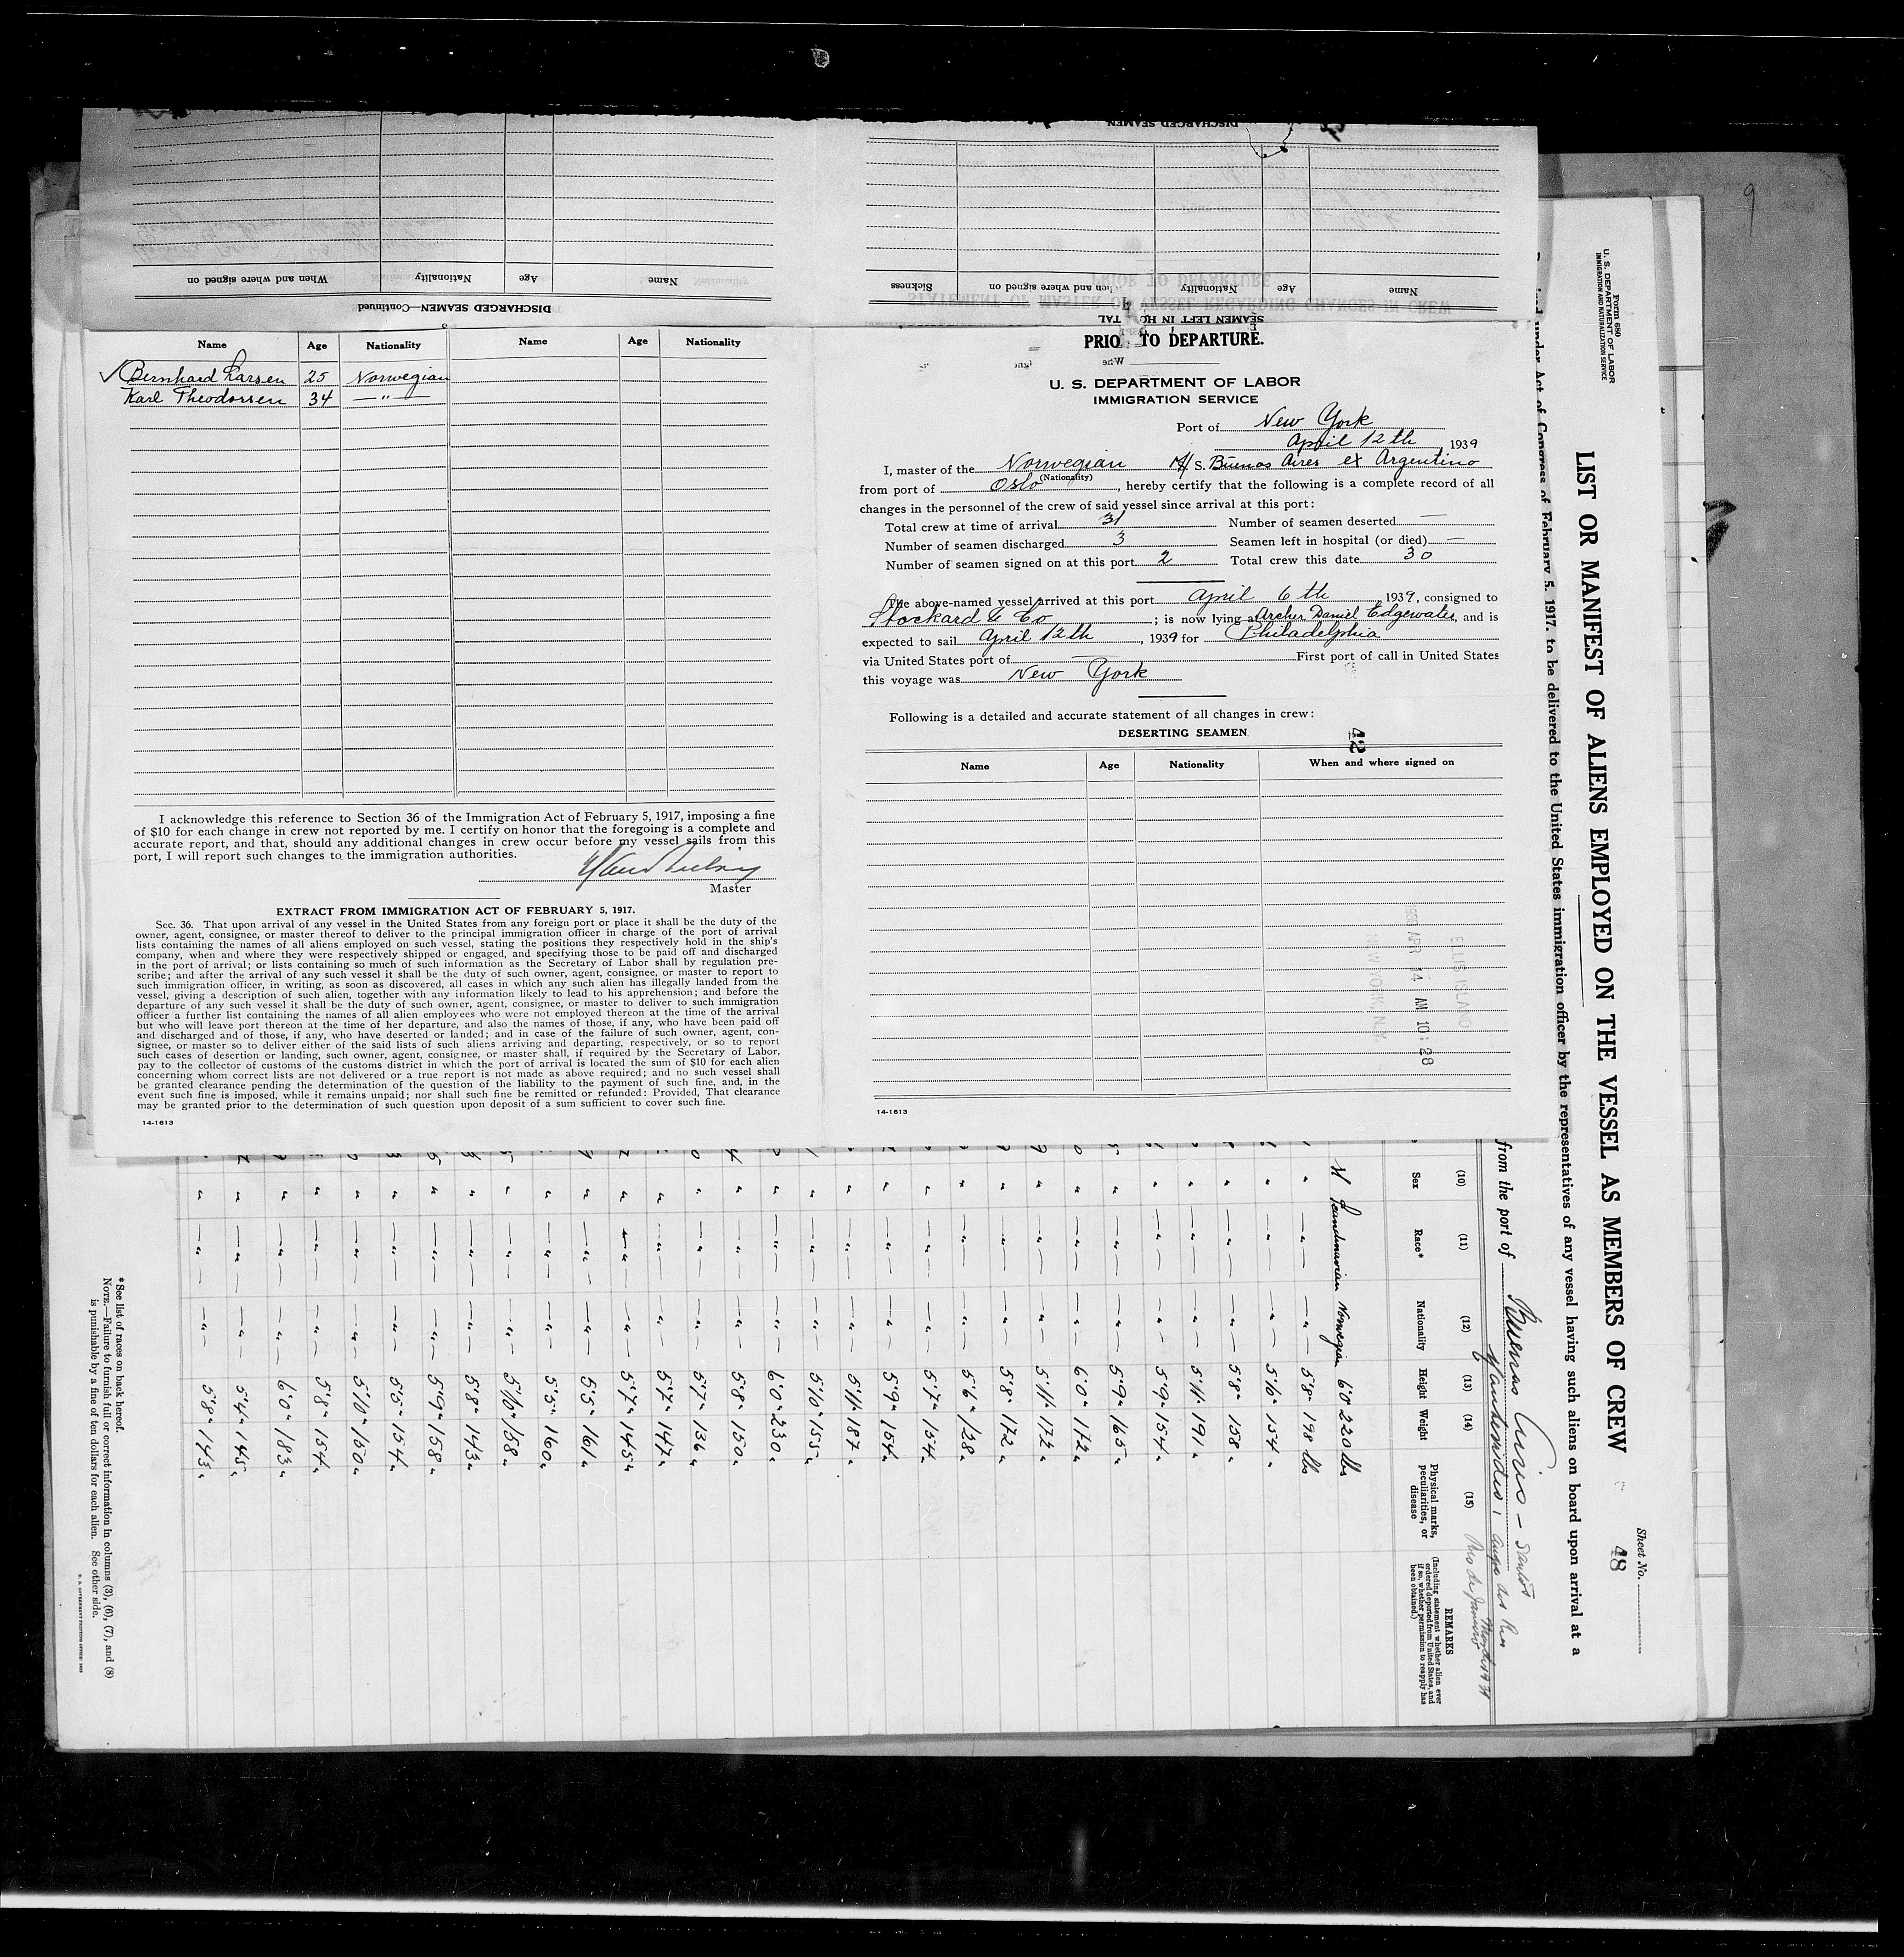 DISCHARGED SEAMEN
Name Nationality Age When and where signed on
DISCHARGED SEAMEN—Continued
Name Age Nationality When and where signed on Sickness
SEAMEN LEFT IN HO TAL
Name Age Nationality Name Age Nationality
Bernhard Larsen 25 Norwegian
Karl Theodorsen 34 — " —
I acknowledge this reference to Section 36 of the Immigration Act of February 5, 1917, imposing a fine
of $10 for each change in crew not reported by me. I certify on honor that the foregoing is a complete and
accurate report, and that, should any additional changes in crew occur before my vessel sails from this
port, I will report such changes to the immigration authorities.
Master
EXTRACT FROM IMMIGRATION ACT OF FEBRUARY 5, 1917.
Sec. 36. That upon arrival of any vessel in the United States from any foreign port or place it shall be the duty of the
owner, agent, consignee, or master thereof to deliver to the principal immigration officer in charge of the port of arrival
lists containing the names of all aliens employed on such vessel, stating the positions they respectively hold in the ship's
company, when and where they were respectively shipped or engaged, and specifying those to be paid off and discharged
in the port of arrival; or lists containing so much of such information as the Secretary of Labor shall by regulation pre-
scribe; and after the arrival of any such vessel it shall be the duty of such owner, agent, consignee, or master to report to
such immigration officer, in writing, as soon as discovered, all cases in which any such alien has illegally landed from the
vessel, giving a description of such alien, together with any information likely to lead to his apprehension; and before the
departure of any such vessel it shall be the duty of such owner, agent, consignee, or master to deliver to such immigration
officer a further list containing the names of all alien employees who were not employed thereon at the time of the arrival
but who will leave port thereon at the time of her departure, and also the names of those, if any, who have been paid off
and discharged and of those, if any, who have deserted or landed; and in case of the failure of such owner, agent, con-
signee, or master so to deliver either of the said lists of such aliens arriving and departing, respectively, or so to report
such cases of desertion or landing, such owner, agent, consignee, or master shall, if required by the Secretary of Labor,
pay to the collector of customs of the customs district in which the port of arrival is located the sum of $10 for each alien
concerning whom correct lists are not delivered or a true report is not made as above required; and no such vessel shall
be granted clearance pending the determination of the question of the liability to the payment of such fine, and, in the
event such fine is imposed, while it remains unpaid; nor shall such fine be remitted or refunded: Provided, That clearance
may be granted prior to the determination of such question upon deposit of a sum sufficient to cover such fine.
14-1613
PRIO TO DEPARTURE.
U. S. DEPARTMENT OF LABOR
IMMIGRATION SERVICE
Port of New York
April 12th, 1939
I, master of the Norwegian M/S. Buenos Aires ex Argentino
(Nationality)
from port of Oslo, hereby certify that the following is a complete record of all
changes in the personnel of the crew of said vessel since arrival at this port:
Total crew at time of arrival 31 Number of seamen deserted —
Number of seamen discharged 3 Seamen left in hospital (or died) —
Number of seamen signed on at this port 2 Total crew this date 30
The above-named vessel arrived at this port April 6th, 1939, consigned to
Stockard & Co; is now lying at Archer Daniel Edgewater, and is
expected to sail April 12th, 1939 for Philadelphia
via United States port of — First port of call in United States
this voyage was New York
Following is a detailed and accurate statement of all changes in crew:
DESERTING SEAMEN
42
Name Age Nationality When and where signed on
ELLIS ISLAND
1939 APR 14 AM 10:28
NEW YORK, N.Y.
14-1613
Form 680
U. S. DEPARTMENT OF LABOR
IMMIGRATION AND NATURALIZATION SERVICE
Sheet No.
48
LIST OR MANIFEST OF ALIENS EMPLOYED ON THE VESSEL AS MEMBERS OF CREW
under Act of Congress of February 5, 1917, to be delivered to the United States immigration officer by the representatives of any vessel having such aliens on board upon arrival at a
from the port of Buenos Aires - Santos
Rio de Janeiro
(10) (11) (12) (13) (14) (15)
Sex Race* Nationality Height Weight Physical marks, peculiarities, or disease REMARKS
(Including statement whether alien ever ordered deported from United States, and if so, whether permission to reapply has been obtained.)
M Scandinavian Norwegian 6'0" 220 lbs
" — " — — " — 5'8" 198 lbs
" — " — — " — 5'6" 154 "
" — " — — " — 5'8" 158 "
" — " — — " — 5'11" 191 "
" — " — — " — 5'9" 154 "
" — " — — " — 5'9" 165 "
" — " — — " — 6'0" 172 "
" — " — — " — 5'11" 172 "
" — " — — " — 5'8" 172 "
" — " — — " — 5'6" 128 "
" — " — — " — 5'7" 154 "
" — " — — " — 5'9" 154 "
" — " — — " — 5'11" 187 "
" — " — — " — 5'10" 155 "
" — " — — " — 6'0" 230 "
" — " — — " — 5'8" 150 "
" — " — — " — 5'7" 136 "
" — " — — " — 5'7" 147 "
" — " — — " — 5'7" 145 "
" — " — — " — 5'5" 161 "
" — " — — " — 5'5" 160 "
" — " — — " — 5'10" 158 "
" — " — — " — 5'8" 143 "
" — " — — " — 5'9" 158 "
" — " — — " — 5'5" 154 "
" — " — — " — 5'10" 150 "
" — " — — " — 5'8" 154 "
" — " — — " — 6'0" 183 "
" — " — — " — 5'4" 145 "
" — " — — " — 5'8" 143 "
*See list of races on back hereof.
NOTE.—Failure to furnish full or correct information in columns (3), (6), (7), and (8)
is punishable by a fine of ten dollars for each alien. See other side.
9